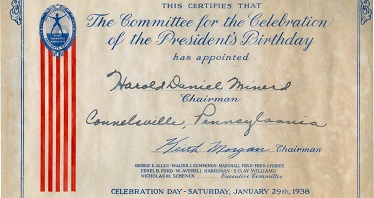 THIS CERTIFIES THAT
The Committee for the Celebration
of the President's Birthday
has appointed
Harold Daniel Minerd
Chairman
Connelsville, Pennsylvania
Keith Morgan Chairman
GEORGE E. ALLEN • WALTER J. CUMMINGS • MARSHALL FIELD • FRED J. FISHER
EDSEL B. FORD W. AVERELL HARRIMAN • S. CLAY WILLIAMS
NICHOLAS M. SCHENCK Executive Committee
CELEBRATION DAY - SATURDAY, JANUARY 29th, 1938